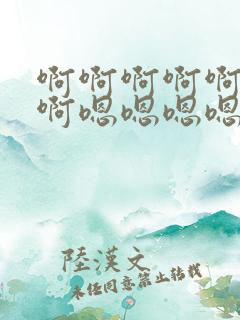 啊啊啊啊啊
啊嗯嗯嗯嗯
陸漢文
未经同意禁止转载